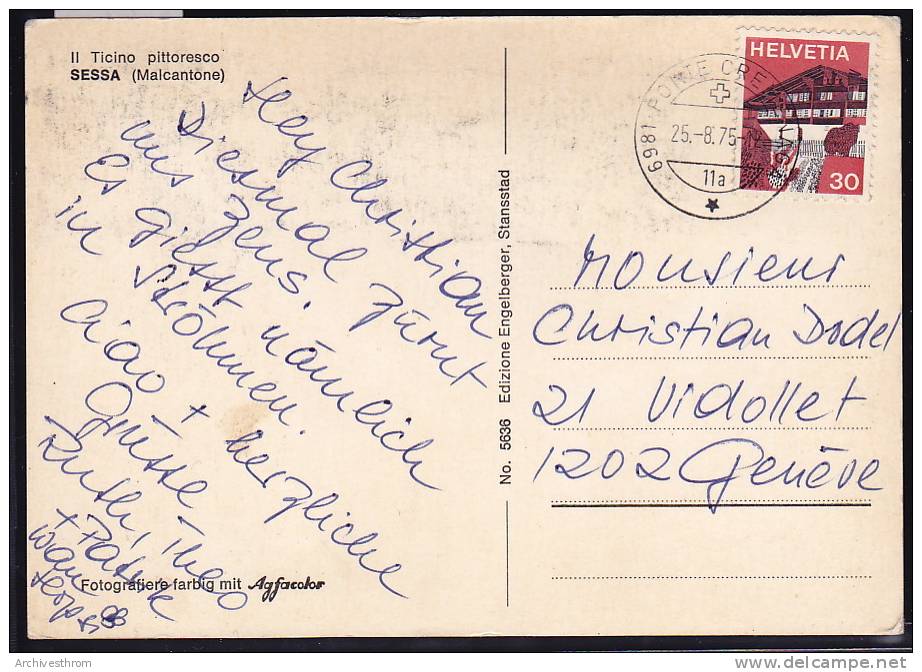 Il Ticino pittoresco
SESSA (Malcantone)
Hey Christian
Diesmal zürnt
uns Zeus.
Es giesst nämlich
in Ströhmen.
Ciao + herzliche
Grüsse –
Ruth, Theo
+ Patrik
Fotografiere farbig mit Agfacolor
No. 5636 Edizione Engelberger, Stansstad
6981 PONTE CRE
25.-8.75-
11a
HELVETIA
30
Monsieur
Christian Dodel
21 Vidollet
1202 Genève
Archivesthrom
delcampe.net